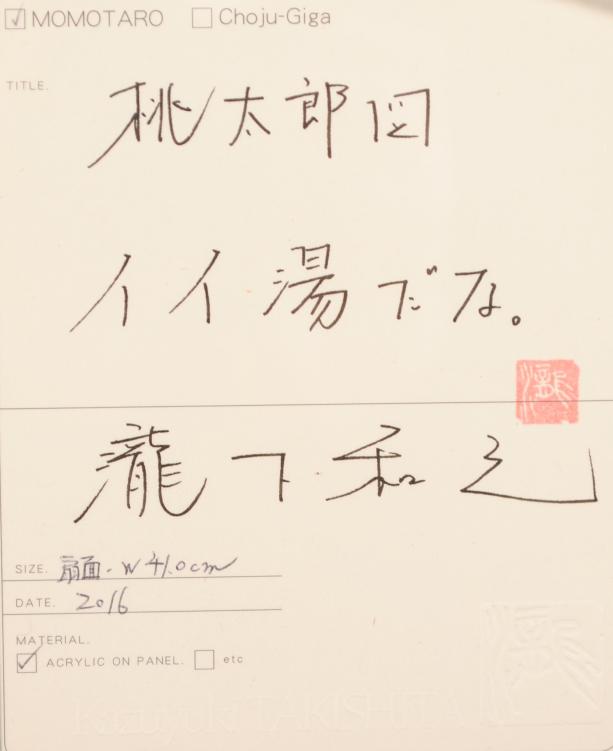 ☑ MOMOTARO ☐ Choju-Giga
TITLE.
桃太郎図
イイ湯だな。
瀧下和之
SIZE. 扇面・W41.0cm
DATE. 2016
MATERIAL.
☑ ACRYLIC ON PANEL. ☐ etc
Kazuyuki TAKISHITA